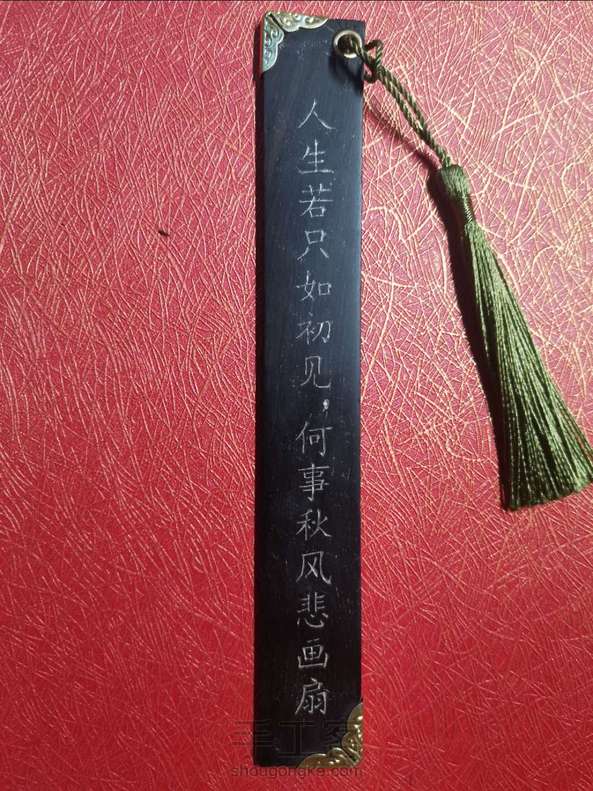 人生若只如初见，何事秋风悲画扇
手工客
shougongke.com